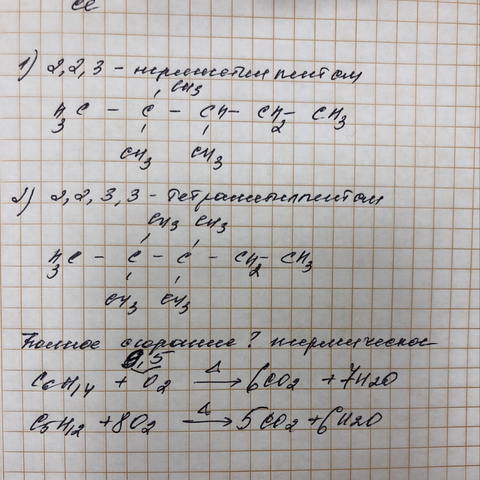 Cl
1) 2,2,3 - триметилпентан
CH3
H3C - C - CH - CH2 - CH3
CH3 CH3
2) 2,2,3,3 - тетраметилпентан
CH3 CH3
H3C - C - C - CH2 - CH3
CH3 CH3
Полное сгорание? термическое
9,5
C6H14 + O2 → 6CO2 + 7H2O
C5H12 + 8O2 → 5CO2 + 6H2O